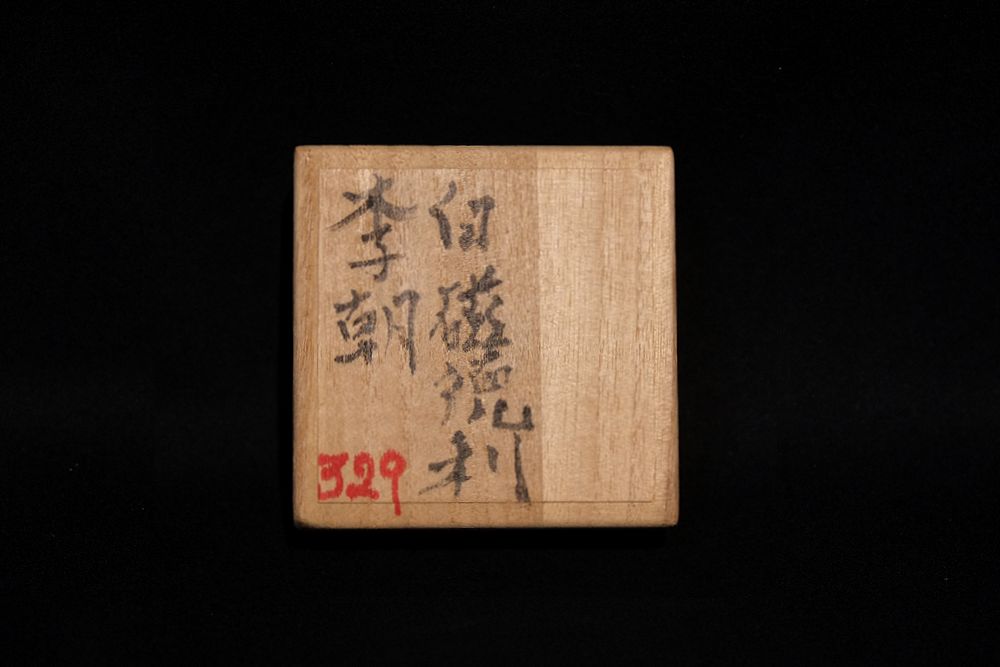 白磁徳利
李朝
329